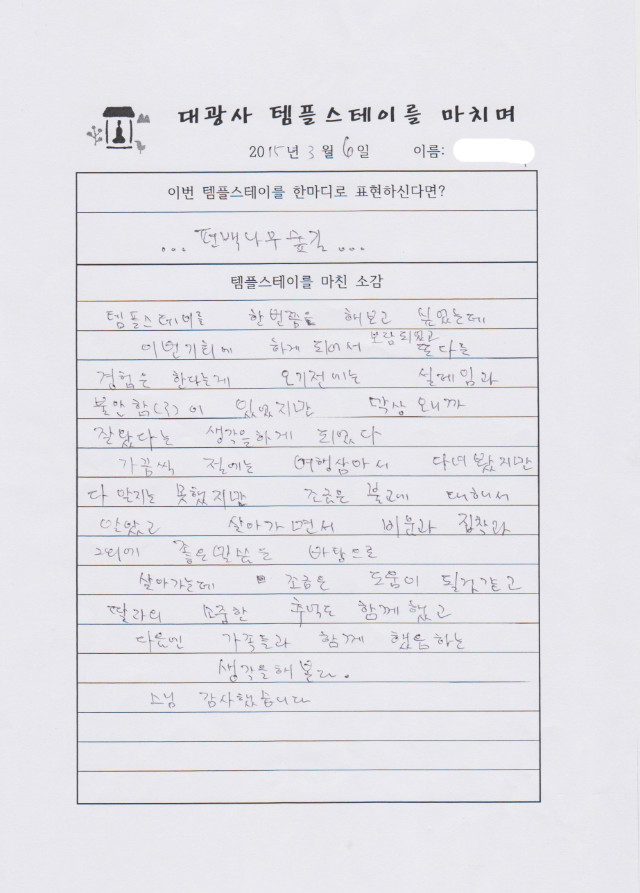 대광사 템플스테이를 마치며
2015년 3월 6일 이름:
이번 템플스테이를 한마디로 표현하신다면?
... 편백나무숲길 ...
템플스테이를 마친 소감
템플스테이를 한번쯤은 해보고 싶었는데
이번기회에 하게 되어서 보람되었고 또다른
경험은 한다는게 오기전에는 설레임과
불안함(?)이 있었지만 막상 오니까
잘왔다는 생각을하게 되었다
가끔씩 절에는 여행삼아서 다녀 봤지만
다 알지는 못했지만 조금은 불교에 대해서
알았고 살아가면서 비움과 집착과
그외에 좋은말씀은 바탕으로
살아가는데 조금은 도움이 될것같고
딸과의 소중한 추억도 함께 했고
다음엔 가족들과 함께 했음하는
생각을해 본다.
스님 감사했습니다